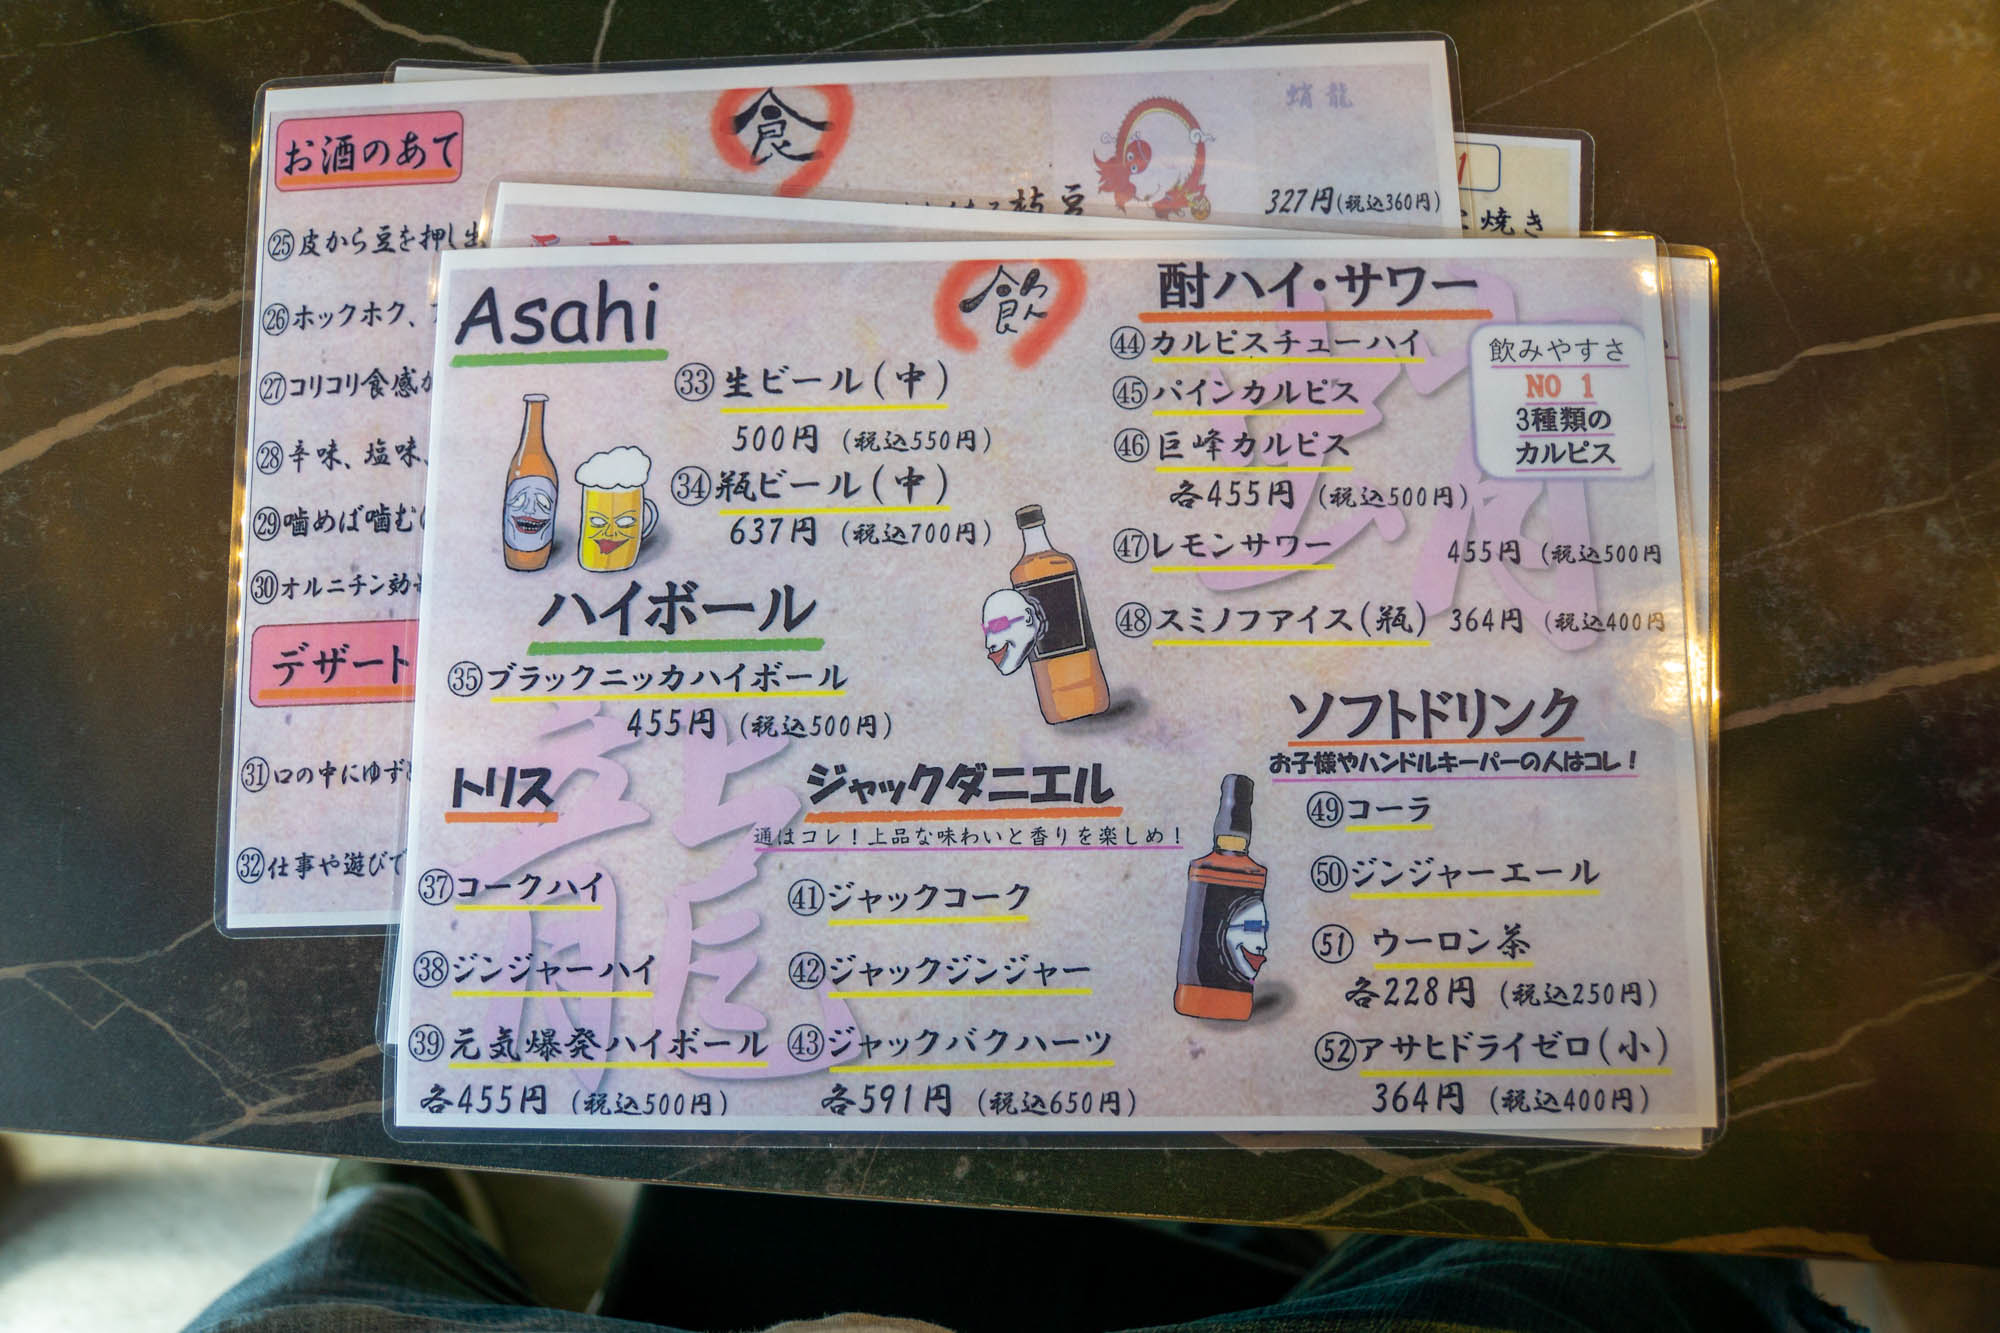 お酒のあて
食
蛸龍
枝豆
327円(税込360円)
焼き
㉕皮から豆を押し
㉖ホックホク、
㉗コリコリ食感
㉘辛味、塩味、
㉙噛めば噛む
㉚オルニチン効
デザート
㉛口の中にゆず
㉜仕事や遊びで
飲
Asahi
㉝生ビール(中)
500円 (税込550円)
㉞瓶ビール(中)
637円 (税込700円)
ハイボール
㉟ブラックニッカハイボール
455円 (税込500円)
トリス
㊲コークハイ
㊳ジンジャーハイ
㊴元気爆発ハイボール
各455円 (税込500円)
ジャックダニエル
通はコレ!上品な味わいと香りを楽しめ!
㊶ジャックコーク
㊷ジャックジンジャー
㊸ジャックバクハーツ
各591円 (税込650円)
酎ハイ・サワー
㊹カルピスチューハイ
㊺パインカルピス
㊻巨峰カルピス
各455円 (税込500円)
飲みやすさ
NO 1
3種類の
カルピス
㊼レモンサワー 455円 (税込500円
㊽スミノフアイス(瓶) 364円 (税込400円
ソフトドリンク
お子様やハンドルキーパーの人はコレ!
㊾コーラ
㊿ジンジャーエール
51 ウーロン茶
各228円 (税込250円)
52アサヒドライゼロ(小)
364円 (税込400円)